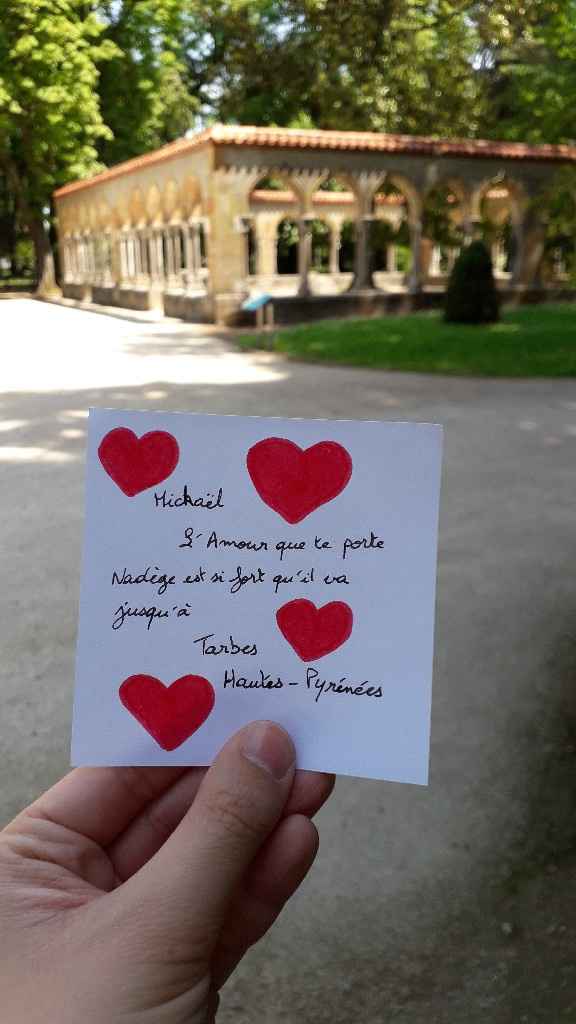 Mickaël
L'Amour que te porte
Nadège est si fort qu'il va
jusqu'à
Tarbes
Hautes-Pyrénées